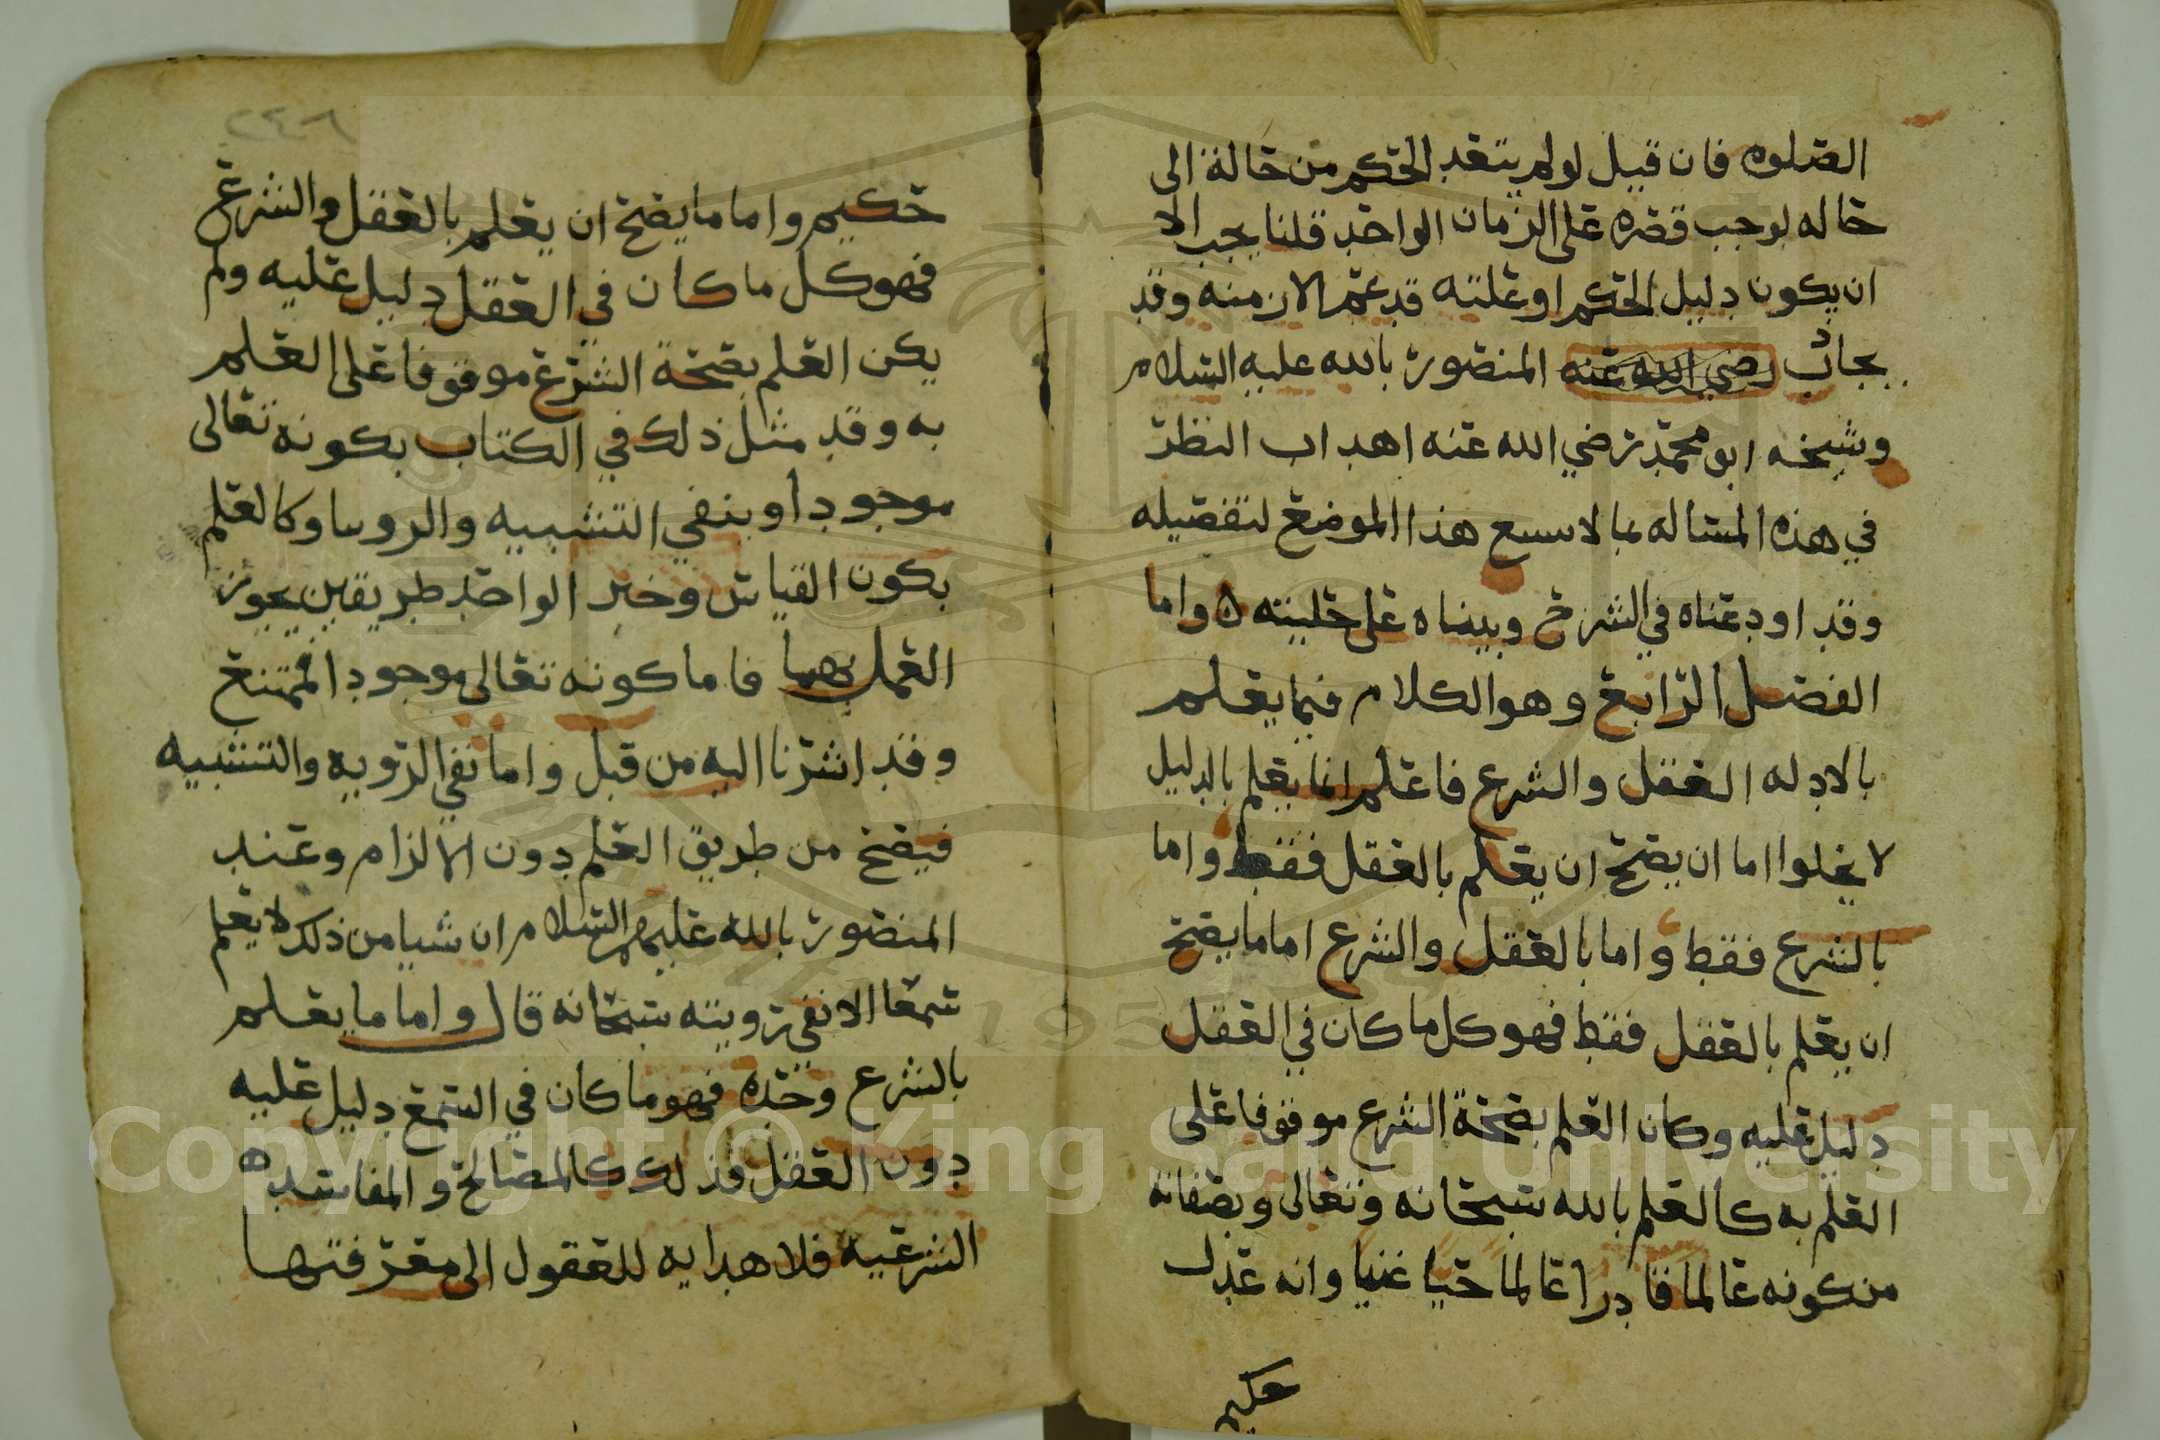 الصلوه فان قيل لو لم يتعد الحكم من حالة الى
حاله لوجب قصره على الزمان الواحد قلنا يجب الا
ان يكون دليل الحكم او علته قد عم الازمنه وقد
المنصور بالله عليه السلام
وشيخه ابو محمد رضي الله عنه اهداب النظر
في هذه المساله بما لا يسع هذا الموضع لتفصيله
وقد اودعناه في الشرح وبيناه على حليته ه واما
الفصل الرابع وهو الكلام فيما يعلم
بالادله العقل والشرع فاعلم انما يعلم بالدليل
لا يخلوا اما ان يصح ان يعلم بالعقل فقط واما
بالشرع فقط واما بالعقل والشرع اما ما يصح
ان يعلم بالعقل فقط فهو كل ما كان في العقل
دليل عليه وكان العلم بصحة الشرع موقوفا على
العلم به كالعلم بالله سبحانه وتعالى وبصفاته
من كونه عالما قادرا عالما حيا غنيا وانه عدل
حكيم
٢٤٦
حكيم واما ما يصح ان يعلم بالعقل والشرع
فهو كل ما كان في العقل دليل عليه ولم
يكن العلم بصحة الشرع موقوفا على العلم
به وقد مثل ذلك في الكتاب بكونه تعالى
موجودا وبنفي التشبيه والرويا وكالعلم
بكون القياس وخبر الواحد طريقين يجوز
العمل بهما فاما كونه تعالى موجودا فممتنع
وقد اشرنا اليه من قبل واما نفي الرويه والتشبيه
فيصح من طريق العلم دون الالزام وعند
المنصور بالله عليهم السلام ان شيا من ذلك لا يعلم
سمعا الا نفي رويته سبحانه قال واما ما يعلم
بالشرع وحده فهو ما كان في السمع دليل عليه
دون العقل فذلك كالمصالح والمفاسد ه
الشرعيه فلا هدايه للعقول الى معرفتها
Copyright © King Saud University
195